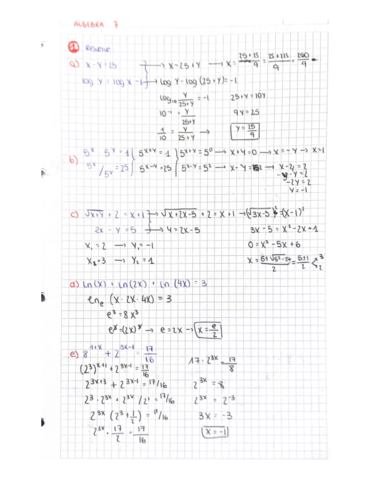 ALGEBRA 7
Resolver
a) x - y = 25 → x = 25 + y → x =
log y = log x - 1 → log y - log (25+y) = -1
log₁₀ y/(25+y) = -1   25+y = 10y
10⁻¹ = y/(25+y)   9y = 25
1/10 = y/(25+y) →   y = 25/9
b) 5ˣ · 5ʸ = 1   5ˣ⁺ʸ = 1   5ˣ⁺ʸ = 5⁰ → x + y = 0 → x = -y → x = 1
5ˣ/5ʸ = 25   5ˣ⁻ʸ = 25   5ˣ⁻ʸ = 5² → x - y = 2 →
-y - y = 2
-2y = 2
y = -1
c) √(x+y) + 2 = x + 1 → √(x+2x-5) + 2 = x + 1 → (√(3x-5))² = (x-1)²
2x - y = 5 → y = 2x - 5   3x - 5 = x² - 2x + 1
x₁ = 2 → y₁ = -1   0 = x² - 5x + 6
x₂ = 3 → y₂ = 1   x = (5±√(5²-24))/2 = (5±1)/2   3   2
d) Ln(x) + Ln(2x) + Ln(4x) = 3
(x · 2x · 4x) = 3
e³ = 8x³
→ e = 2x → x = e/2
e) 8¹⁺ˣ + 2³ˣ⁻¹ = 17/16   17 · 2³ˣ = 17/8
(2³)ˣ⁺¹ + 2³ˣ⁻¹ = 17/16
2³ˣ⁺³ + 2³ˣ⁻¹ = 17/16   2³ˣ = 8
2³ · 2³ˣ + 2³ˣ/2¹ = 17/16   2³ˣ = 2⁻³
2³ˣ (2³ + 1/2) = 17/16   3x = -3
2³ˣ · 17/2 = 17/16   x = -1